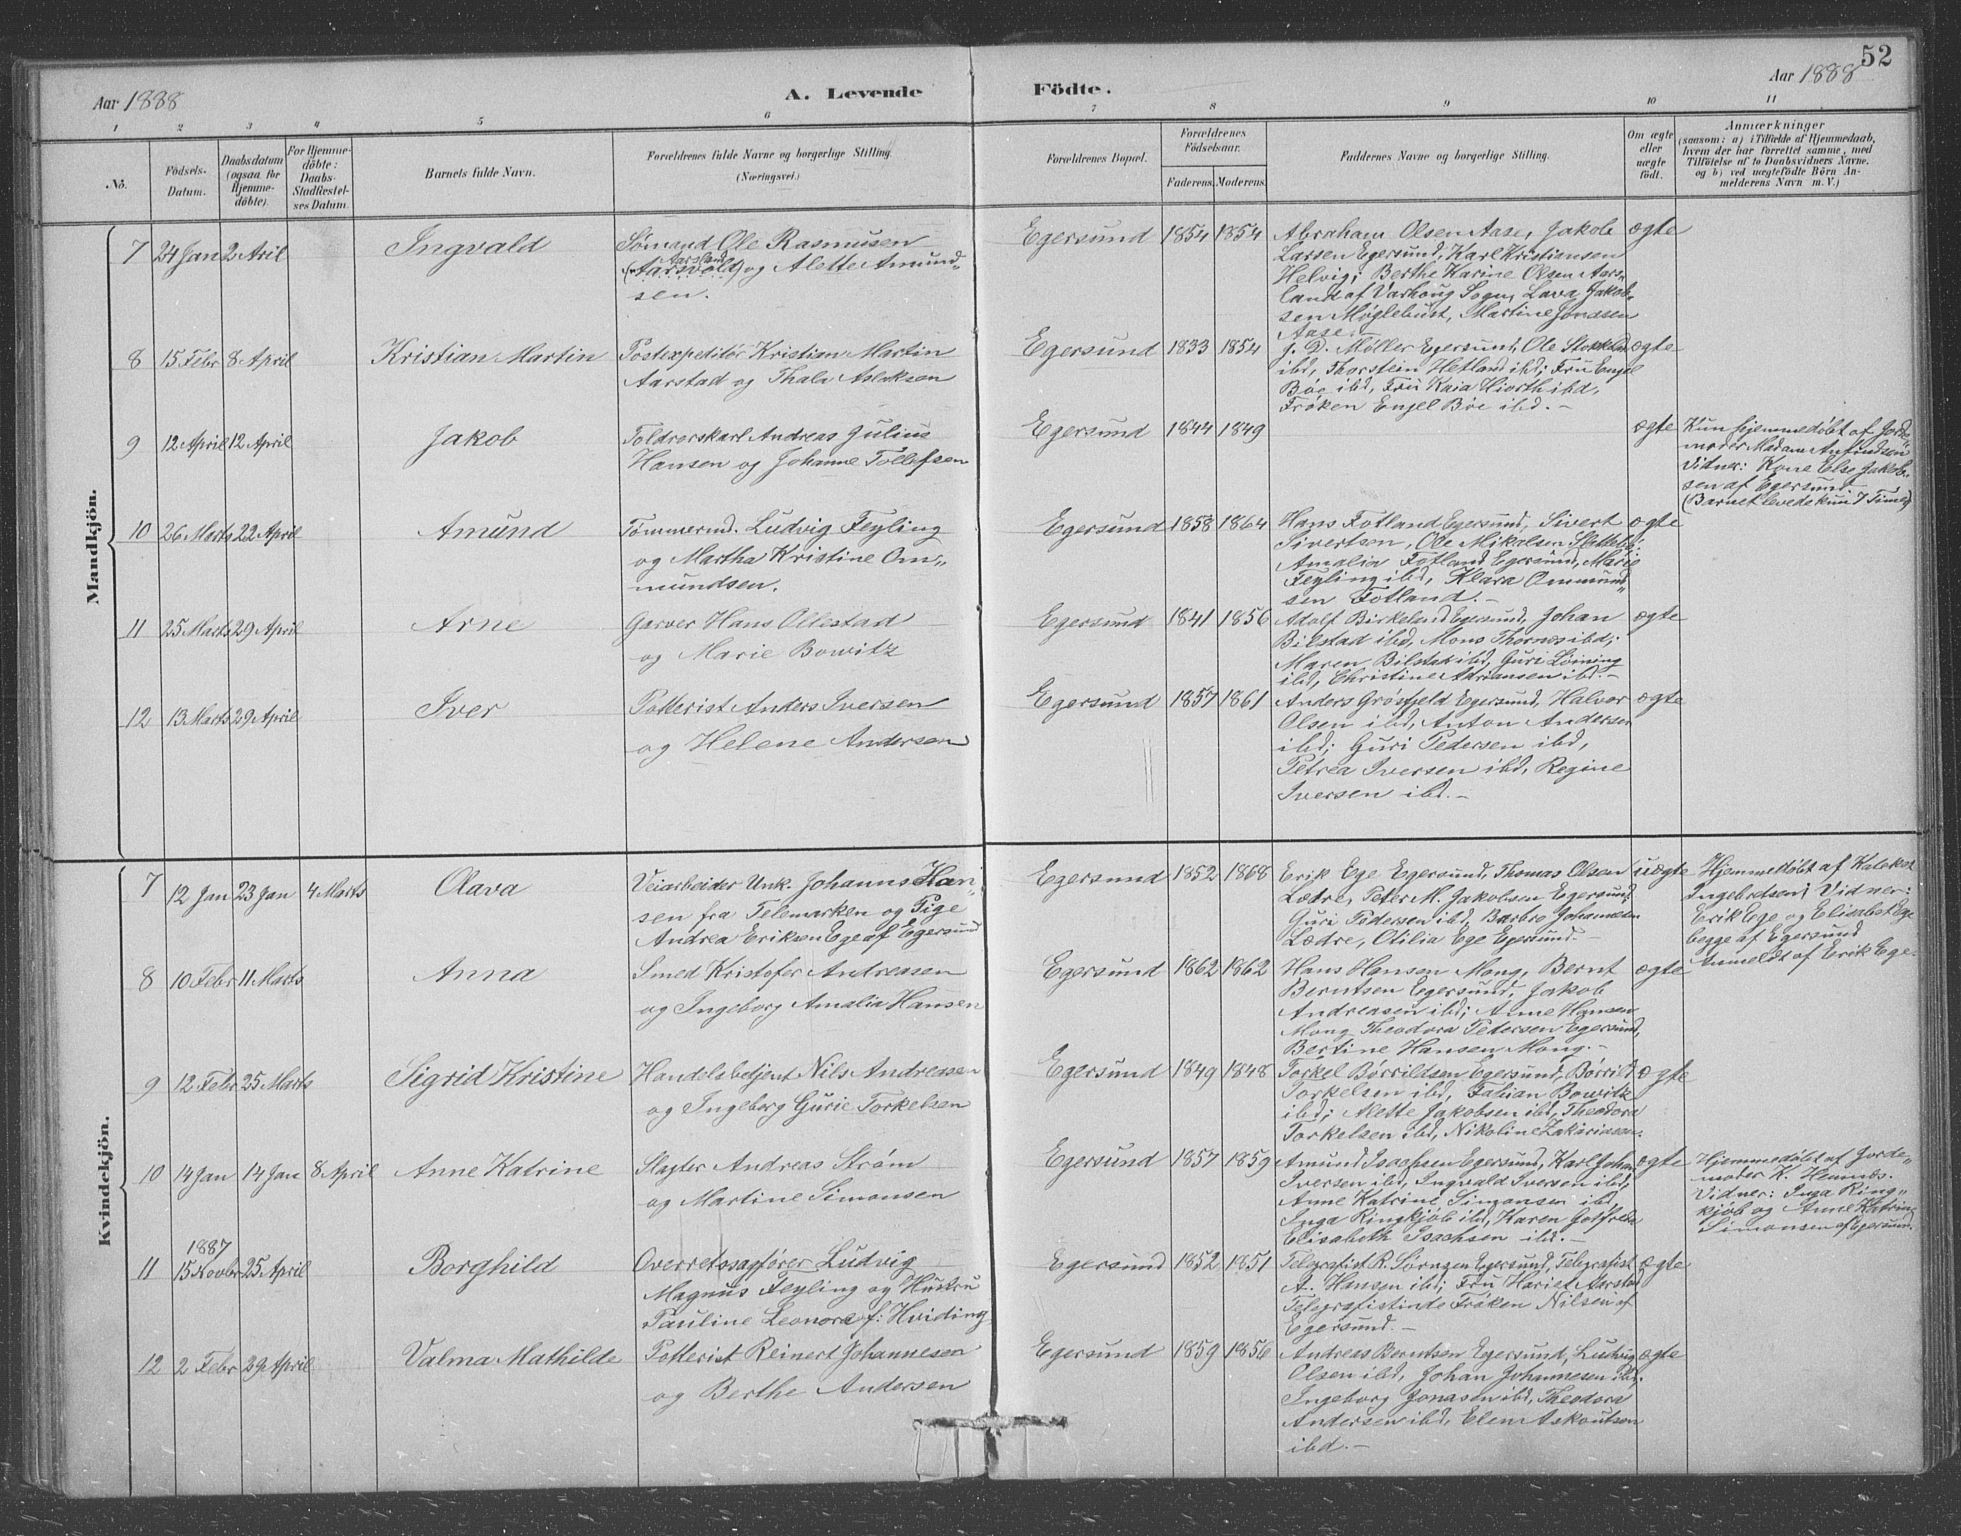 52
Aar 1888
A. Levende Födte.
Aar 1888
1 2 3 4 5 6 7 8 9 10 11
No.
Födsels-
Datum.
Daabsdatum
(ogsaa for
Hjemme-
döbte).
For Hjemme-
döbte:
Daabs-
Stadfæstel-
ses Datum.
Barnets fulde Navn.
Forældrenes fulde Navne og borgerlige Stilling
(Næringsvei.)
Forældrenes Bopæl.
Forældrenes
Födselsaar.
Faderens. Moderens.
Faddernes Navne og borgerlige Stilling.
Om ægte
eller
uægte
födt.
Anmærkninger
(saasom: a) i Tilfælde af Hjemmedaab,
hvem der har forrettet samme, med
Tilföielse af to Daabsvidners Navne,
og b) ved uægtefödte Börn An-
melderens Navn m. V.)
Mandkjön.
7 24 Jan 2 April Ingvald
Sømand Ole Rasmusen
Aarsland
(Aarsvold) og Alette Amund-
sen.
Egersund 1854 1854
Abraham Olsen Aase, Jakob
Larsen Egersund, Karl Kristiansen
Helvig; Berthe Karine Olsen Aars-
land af Varhoug Sogn, Lava Jakob-
sen Møglebust, Martine Jonassen
Aase.-
ægte
8 15 Febr 8 April Kristian Martin
Postexpeditør Kristian Martin
Aarstad og Thala Aslaksen
Egersund 1833 1854
J. D. Møller Egersund, Ole Stokkeland
ibd, Thorstein Hetland ibd; Fru Engel
Böe ibd, Fru Kaia Hiorth ibd,
Frøken Engel Böe ibd.-
ægte
9 12 April 12 April Jakob
Toldrorskarl Andreas Julius
Hansen og Johanne Tollefsen
Egersund 1844 1849
ægte
Kun hjemmedøbt af Jorde-
moder Madam
Vidner: Kone Else Jakob-
sen af Egersund
(Barnet levede kun 7 Timer)
10 26 Marts 22 April Amund
Tømmermd. Ludvig Feyling
og Martha Kristine Om-
mundsen.
Egersund 1858 1864
Hans Fotland Egersund, Sivert
Sivertsen, Ole Mikalsen Slettebø;
Amalia Fotland Egersund, Marie
Feyling ibd, Klara Ommund-
sen Fotland.-
ægte
11 25 Marts 29 April Arne
Garver Hans Ollestad
og Marie Bowitz
Egersund 1841 1856
Adolf Birkeland Egersund, Johan
Bilstad ibd, Mons Thornes ibd;
Maren Bilstad ibd, Guri Løining
ibd, Christine Adriansen ibd.-
ægte
12 13 Marts 29 April Iver
Potterist Anders Iversen
og Helene Andersen
Egersund 1857 1861
Anders Grøsfjeld Egersund, Halvor
Olsen ibd, Anton Andersen
ibd; Guri Pedersen ibd,
Petrea Iversen ibd, Regine
Iversen ibd.-
ægte
Kvindekjön.
7 12 Jan 23 Jan 4 Marts Olava
Veiarbeider Unk. Johanns Han-
sen fra Telemarken og Pige
Andrea Eriksen Ege af Egersund
Egersund 1852 1868
Erik Ege Egersund, Thomas Olsen
Lædre, Peter M. Jakobsen Egersund;
Guri Pedersen ibd, Barbro Johannesen
Lædre, Otilia Ege Egersund.-
uægte
Hjemmedøbt af Kateket
Ingebretsen; Vidner:
Erik Ege og Elisabet Ege
begge af Egersund
Anmeldt af Erik Ege.
8 10 Febr 11 Marts Anna
Smed Kristofer Andreasen
og Ingeborg Amalia Hansen
Egersund 1862 1862
Hans Hansen Mong, Bernt
Berntsen Egersund, Jakob
Andreasen ibd; Anne Hansen
Mong, Theodora Pedersen Egersund,
Bertine Hansen Mong.-
ægte
9 12 Febr 25 Marts Sigrid Kristine
Handelsbetjent Nils Andreasen
og Ingeborg Gurie Torkelsen
Egersund 1849 1848
Torkel Børrildsen Egersund, Børrild
Torkelsen ibd, Fabian Bowitz
ibd; Alette Jakobsen ibd, Theodora
Torkelsen ibd, Nikoline Zakariassen.
ægte
10 14 Jan 14 Jan 8 April Anne Katrine
Slagter Andreas Strøm
og Martine Simonsen
Egersund 1857 1859
Amund Isachsen Egersund, Karl Johan
Iversen ibd, Ingvald Iversen ibd;
Anne Katrine Simonsen ibd,
Inga Ringkjøb ibd, Karen Gotfreda
Elisabeth Isachsen ibd.-
ægte
Hjemmedøbt af Jorde-
moder K.
Vidner: Inga Ring-
kjøb og Anne Katrin
Simonsen af Egersund.
1887
11 15 Novbr 25 April Borghild
Overretssagfører Ludvig
Magnus Feyling og Hustru
Pauline Leonora f: Hviding
Egersund 1852 1851
Telegrafist R. Sørnsen Egersund, Telegrafist
A. Hansen ibd; Fru Hariet Aarstad
Telegrafistinde Frøken Nilsen af
Egersund.-
ægte
12 2 Febr 29 April Valma Mathilde
Potterist Reinert Johannesen
og Berthe Andersen
Egersund 1859 1856
Andreas Berntsen Egersund, Ludvig
Olsen ibd, Johan Johannesen ibd;
Ingeborg Jonasen ibd, Theodora
Andersen ibd, Elen Askoutsen
ibd.-
ægte